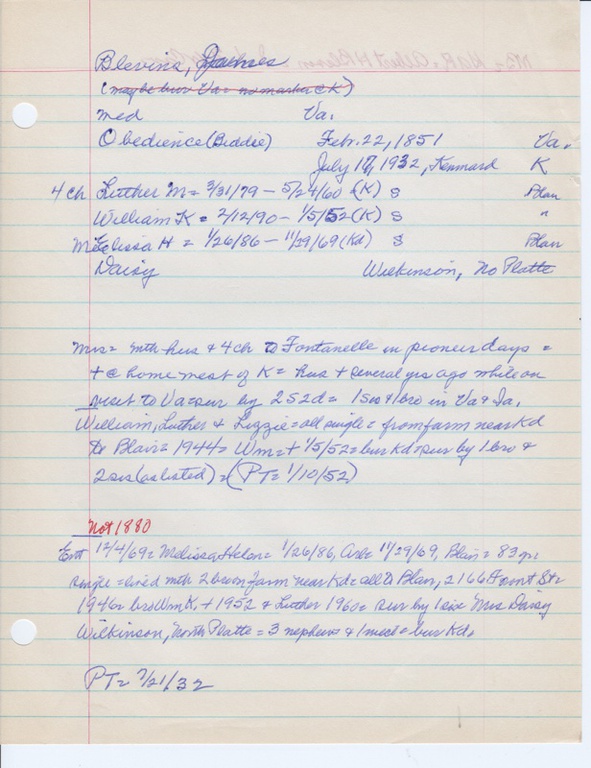 Blevins, James
(maybe bur Va = no marker K)
Med Va.
Obedience (Biddie) Feb. 22, 1851 Va.
July 17, 1932, Kennard K
4 ch Luther M = 3/31/79 - 5/24/60 (K) s Blair
William K = 2/12/90 - 1/5/52 (K) s "
Melissa H = 1/26/86 - 11/29/69 (Kd) s Blair
Daisy Wilkinson, No Platte
Mrs = mth hus & 4 ch to Fontanelle in pioneer days =
+ @ home west of K = hus + several yrs ago while on
visit to Va = sur by 2S 2d = 1 sis & 1 bro in Va & Ia.
William, Luther & Lizzie = all single = from farm near Kd
to Blair = 1944 = Wm = + 1/5/52 = bur Kd = sur by 1 bro &
2 sis (as listed) = (PT = 1/10/52)
Not 1880
Ent 12/4/69 = Melissa Helen = 1/26/86, Ark = 11/29/69, Blair = 83 yrs
single = lived mth 2 bro on farm near Kd = all to Blair, 2166 Front St =
1946 = bro Wm K, + 1952 & Luther 1960 = sur by 1 sis Mrs Daisy
Wilkinson, North Platte = 3 nephews & 1 niece = bur Kd.
PT = 7/21/32